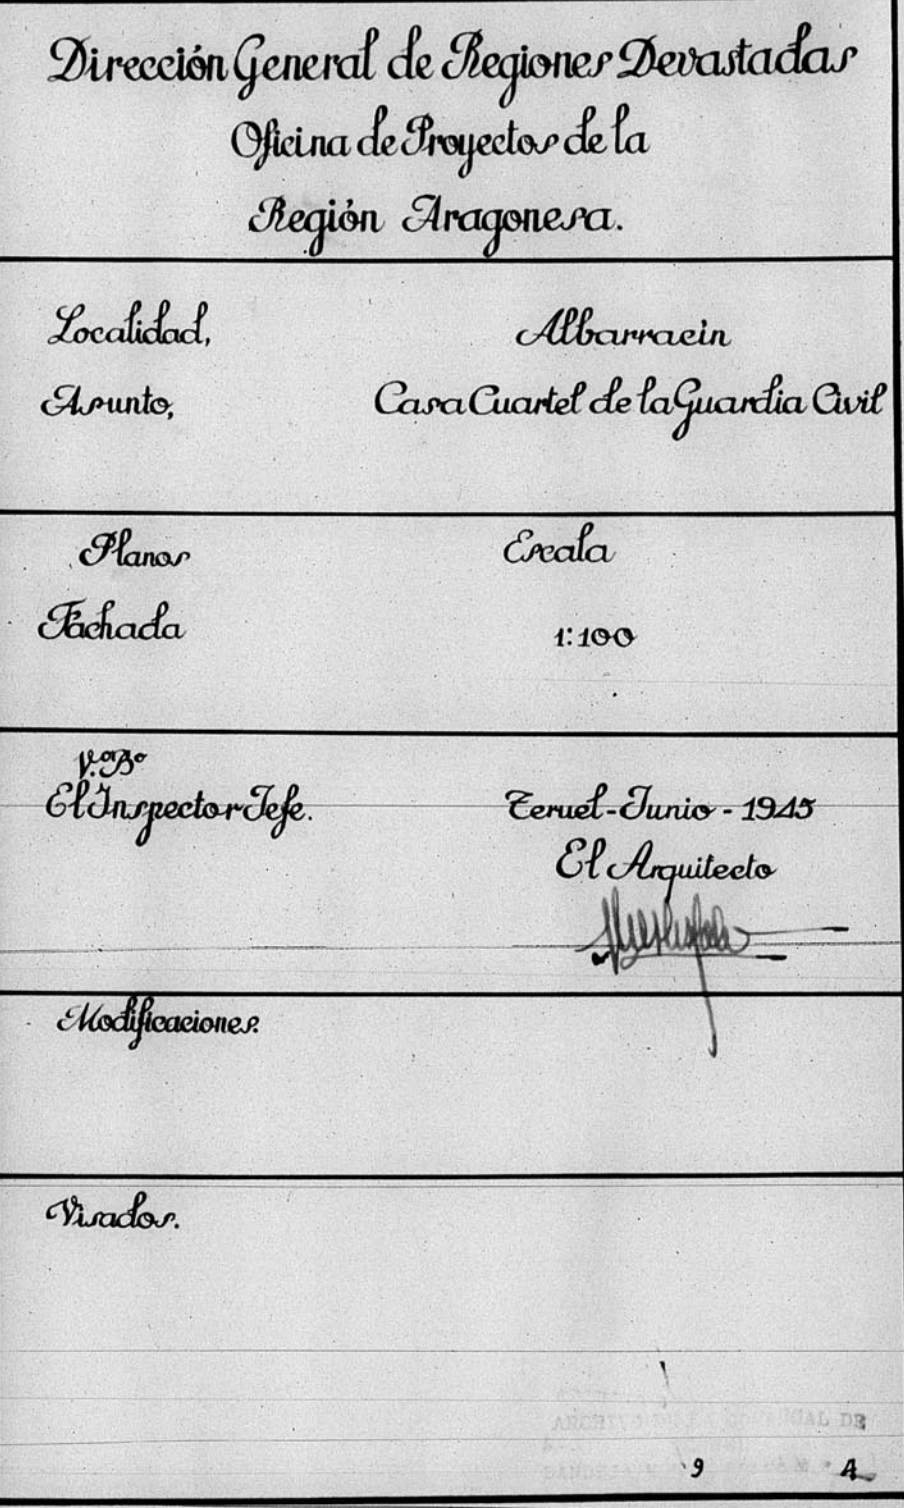 Dirección General de Regiones Devastadas
Oficina de Proyectos de la
Región Aragonesa.
Localidad, Albarracin
Asunto, Casa Cuartel de la Guardia Civil
Planos Escala
Fachada 1:100
V.º B.º
El Inspector Jefe. Teruel-Junio-1945
El Arquitecto
Modificaciones.
Visados.
DE
9 4